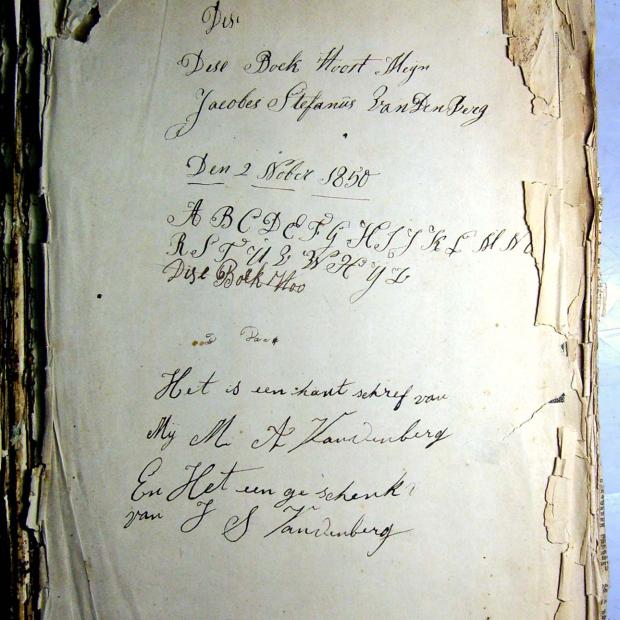 Dis
Dese Boek Hoort Meyn
Jacobes Stefanus Van Den Berg
Den 2 Nober 1850
A B C D E F G H I J K L M N O
R S T U V W X Y Z
Dise Boek Hoo
Het is een hant schref van
Mij M A Vandenberg
En Het een ge schenk
van J S Vandenberg